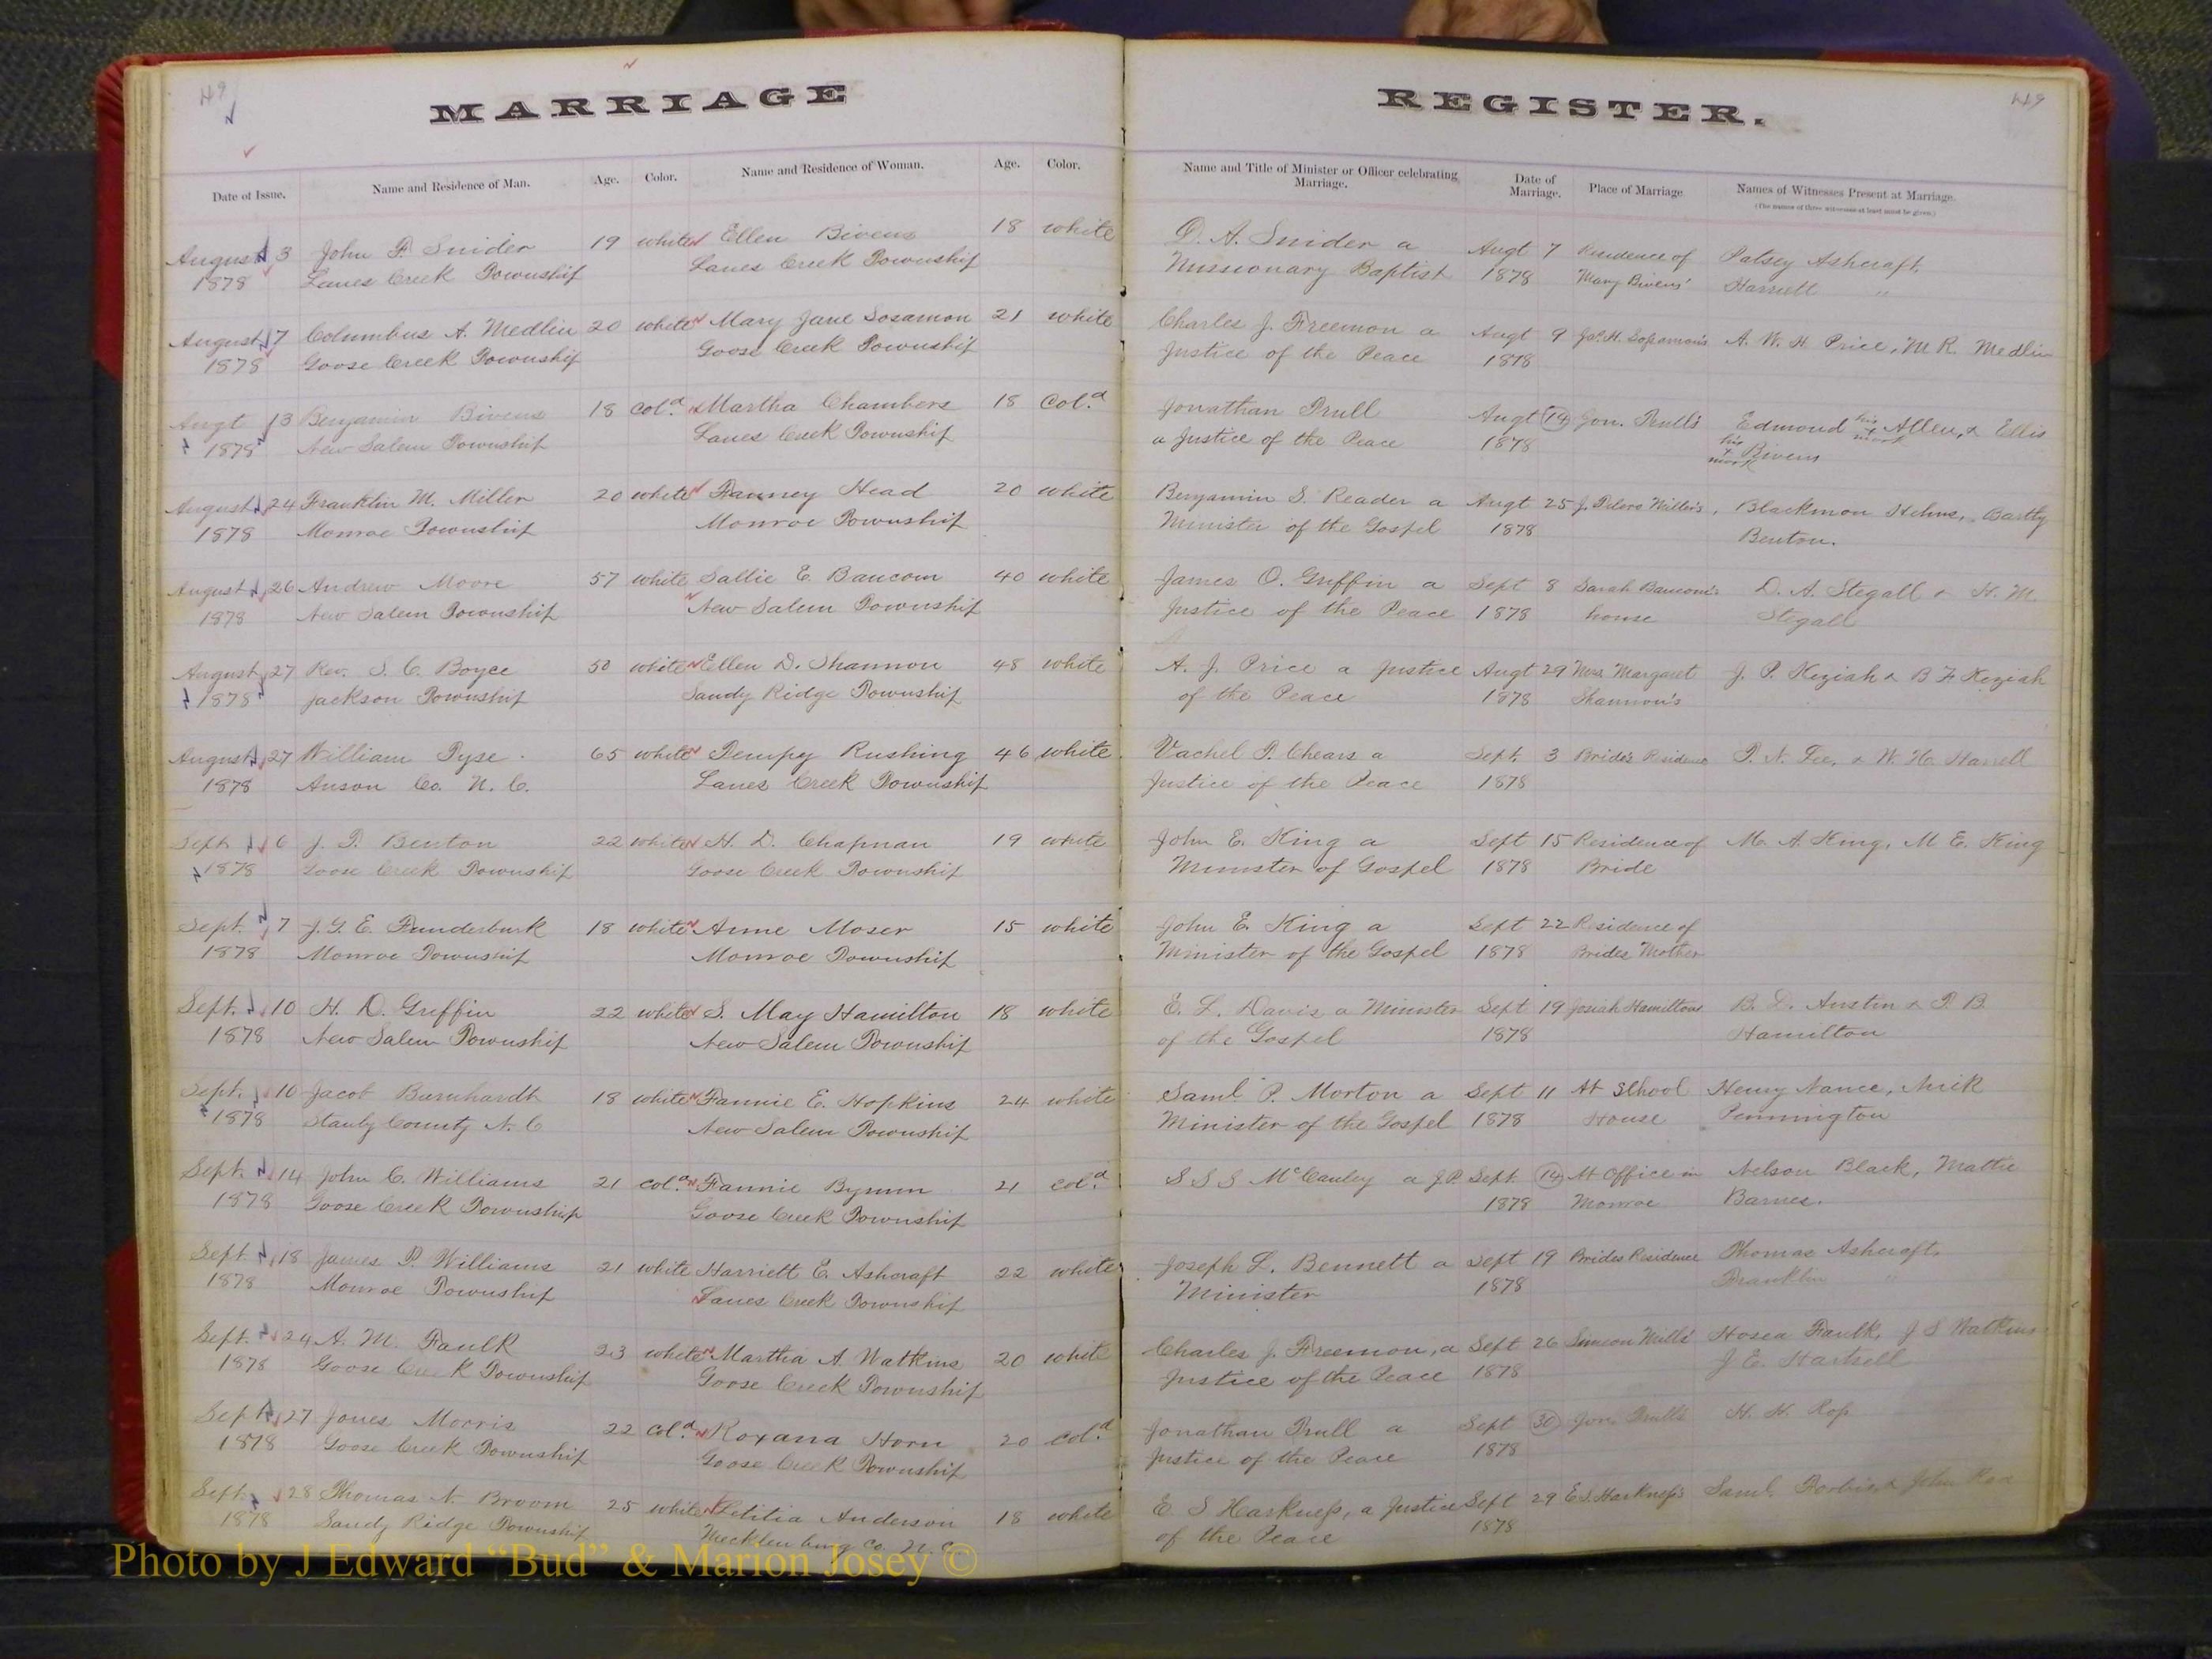 49
MARRIAGE REGISTER.
449
Date of Issue. Name and Residence of Man. Age. Color. Name and Residence of Woman. Age. Color. Name and Title of Minister or Officer celebrating Marriage. Date of Marriage. Place of Marriage Names of Witnesses Present at Marriage.
(The names of three witnesses at least must be given.)
August 3 John P. Snider 19 white Ellen Bivens 18 white D. A. Snider a Augt 7 Residence of Patsey Ashcraft,
1878 Lanes Creek Township Lanes Creek Township Missionary Baptist 1878 Mary Bivens' Harriett "
August 7 Columbus A. Medlin 20 white Mary Jane Sosamon 21 white Charles J. Freemon a Augt 9 A. W. H. Price, M R. Medlin
1878 Goose Creek Township Goose Creek Township Justice of the Peace 1878
Augt 13 Benjamin Bivens 18 Col.d Martha Chambers 18 Col.d Jonathan Trull Augt 14 Jon. Trull's Edmond his x mark Allen, & Ellis
1878 New Salem Township Lanes Creek Township a Justice of the Peace 1878 his x mark Bivens
August 24 Franklin M. Miller 20 white Fanney Head 20 white Benjamin S. Reader a Augt 25 Blackmon Helms, Bartly
1878 Monroe Township Monroe Township Minister of the Gospel 1878 Benton.
August 26 Andrew Moore 57 white Sallie E. Baucom 40 white James O. Griffin a Sept 8 Sarah Baucom's D. A. Stegall & H. M.
1878 New Salem Township New Salem Township Justice of the Peace 1878 house Stegall
August 27 Rev. S. C. Boyce 50 white Ellen D. Shannon 48 white A. J. Price a Justice Augt 29 Mrs Margaret J. P. Keziah & B F Keziah
1878 Jackson Township Sandy Ridge Township of the Peace 1878 Shannon's
August 27 William Tyse 65 white Tempy Rushing 46 white Vachel T. Chears a Sept. 3 Bride's Residence T. N. Lee, & W. H. Harrell
1878 Anson Co. N. C. Lanes Creek Township Justice of the Peace 1878
Sept 6 J. T. Benton 22 white H. D. Chapman 19 white John E. King a Sept 15 Residence of M. A. King, M E. King
1878 Goose Creek Township Goose Creek Township Minister of Gospel 1878 Bride
Sept. 7 J. G. E. Funderburk 18 white Anne Moser 15 white John E. King a Sept 22 Residence of
1878 Monroe Township Monroe Township Minister of the Gospel 1878 Brides Mother
Sept. 10 H. D. Griffin 22 white S. May Hamilton 18 white E. L. Davis a Minister Sept 19 Josiah Hamiltons B. D. Austin & T B
1878 New Salem Township New Salem Township of the Gospel 1878 Hamilton
Sept. 10 Jacob Barnhardt 18 white Fannie E. Hopkins 24 white Saml. P. Morton a Sept 11 At School Henry Nance, Mick
1878 Stanly County N. C New Salem Township Minister of the Gospel 1878 House Pennington
Sept. 14 John C. Williams 21 Col.d Fannie Bynum 21 Col.d S S S McCauley a J.P. Sept. 14 At Office in Nelson Black, Mattie
1878 Goose Creek Township Goose Creek Township 1878 Monroe Barnes.
Sept. 18 James P. Williams 21 white Harriett E. Ashcraft 22 white Joseph L. Bennett a Sept 19 Brides Residence Thomas Ashcraft,
1878 Monroe Township Lanes Creek Township Minister 1878 Franklin "
Sept. 24 A. M. Faulk 23 white Martha A. Watkins 20 white Charles J. Freemon, a Sept 26 Simeon Mills' Hosea Faulk, J S Watkins
1878 Goose Creek Township Goose Creek Township Justice of the Peace 1878 J. E. Hartsell
Sept 27 Jones Morris 22 Col.d Roxana Horn 20 Col.d Jonathan Trull a Sept 30 Jon. Trulls H. H. Ross
1878 Goose Creek Township Goose Creek Township Justice of the Peace 1878
Sept. 28 Thomas N. Broom 25 white Letitia Anderson 18 white E S Harkness, a Justice Sept 29 E S. Harkness's Saml. & John
1878 Sandy Ridge Township Mecklenburg Co. N. C of the Peace 1878
Photo by J Edward “Bud” & Marion Josey ©